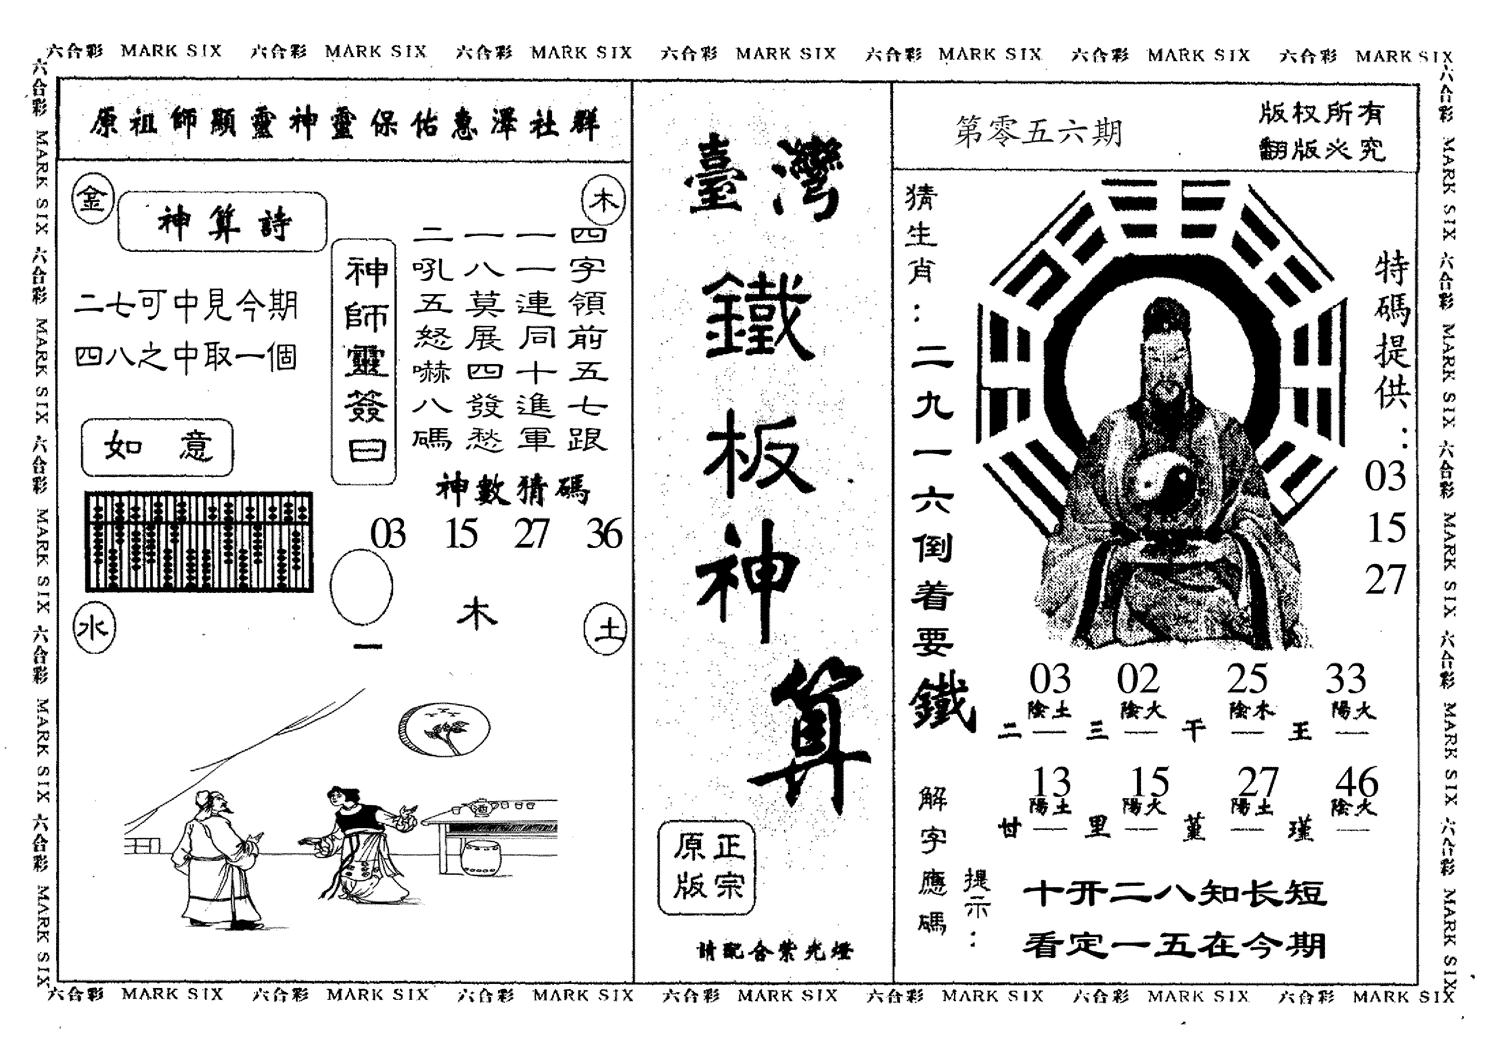 六合彩 MARK SIX 六合彩 MARK SIX 六合彩 MARK SIX 六合彩 MARK SIX 六合彩 MARK SIX 六合彩 MARK SIX 六合彩 MARK SIX
六合彩 MARK SIX 六合彩 MARK SIX 六合彩 MARK SIX 六合彩 MARK SIX 六合彩 MARK SIX
原祖師顯靈神靈保佑惠澤社群
金
木
神算詩
二七可中見今期
四八之中取一個
神師靈簽曰
四字領前五七跟
一一連同十進軍
一八莫展四發愁
二吼五怒嚇八碼
如意
神數猜碼
03 15 27 36
水
木
土
一
酒
臺灣
鐵板神算
正宗
原版
請配合紫光燈
第零五六期
版权所有
翻版必究
猜生肖：二九一六倒着要
鐵
特碼提供：
03
15
27
03 02 25 33
陰土 陰火 陰木 陽火
二 三 干 王
13 15 27 46
陽土 陽火 陽土 陰火
甘 里 堇 瑾
解字應碼
提示：
十开二八知长短
看定一五在今期
六合彩 MARK SIX 六合彩 MARK SIX 六合彩 MARK SIX 六合彩 MARK SIX 六合彩 MARK SIX
六合彩 MARK SIX 六合彩 MARK SIX 六合彩 MARK SIX 六合彩 MARK SIX 六合彩 MARK SIX 六合彩 MARK SIX 六合彩 MARK SIX